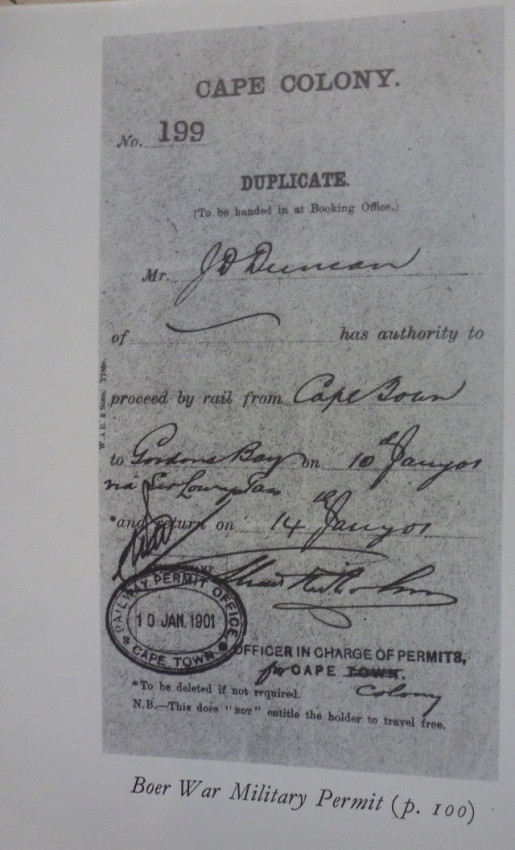 CAPE COLONY.
No. 199
DUPLICATE.
(To be handed in at Booking Office.)
Mr. J D Duncan
of has authority to
proceed by rail from Cape Town
to Gordons Bay on 10th Jany 01
via Sir Lowry Pass
*and return on 14th Jany 01
RAILWAY PERMIT OFFICE
10 JAN. 1901
* CAPE TOWN *
OFFICER IN CHARGE OF PERMITS,
for CAPE TOWN.
Colony
*To be deleted if not required.
N.B.—This does "not" entitle the holder to travel free.
Boer War Military Permit (p. 100)